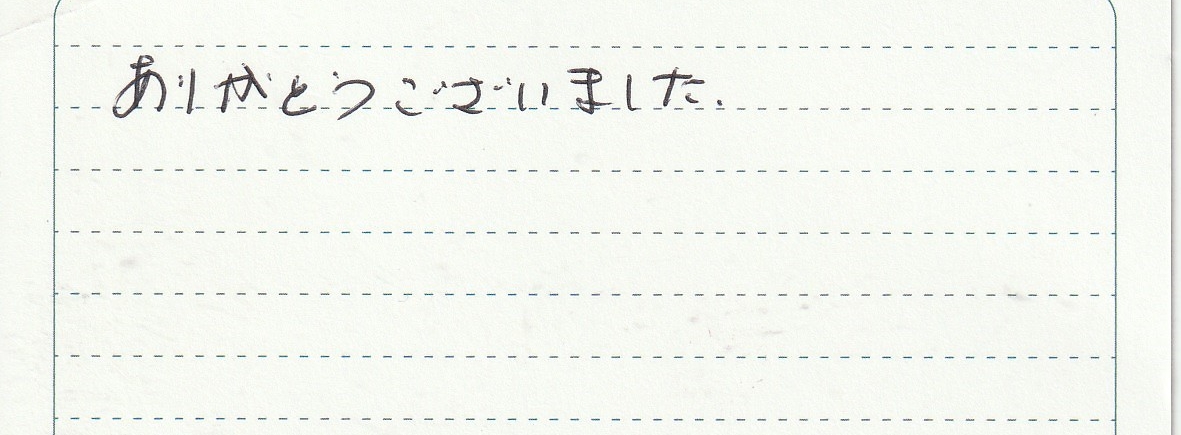 ありがとうございました.